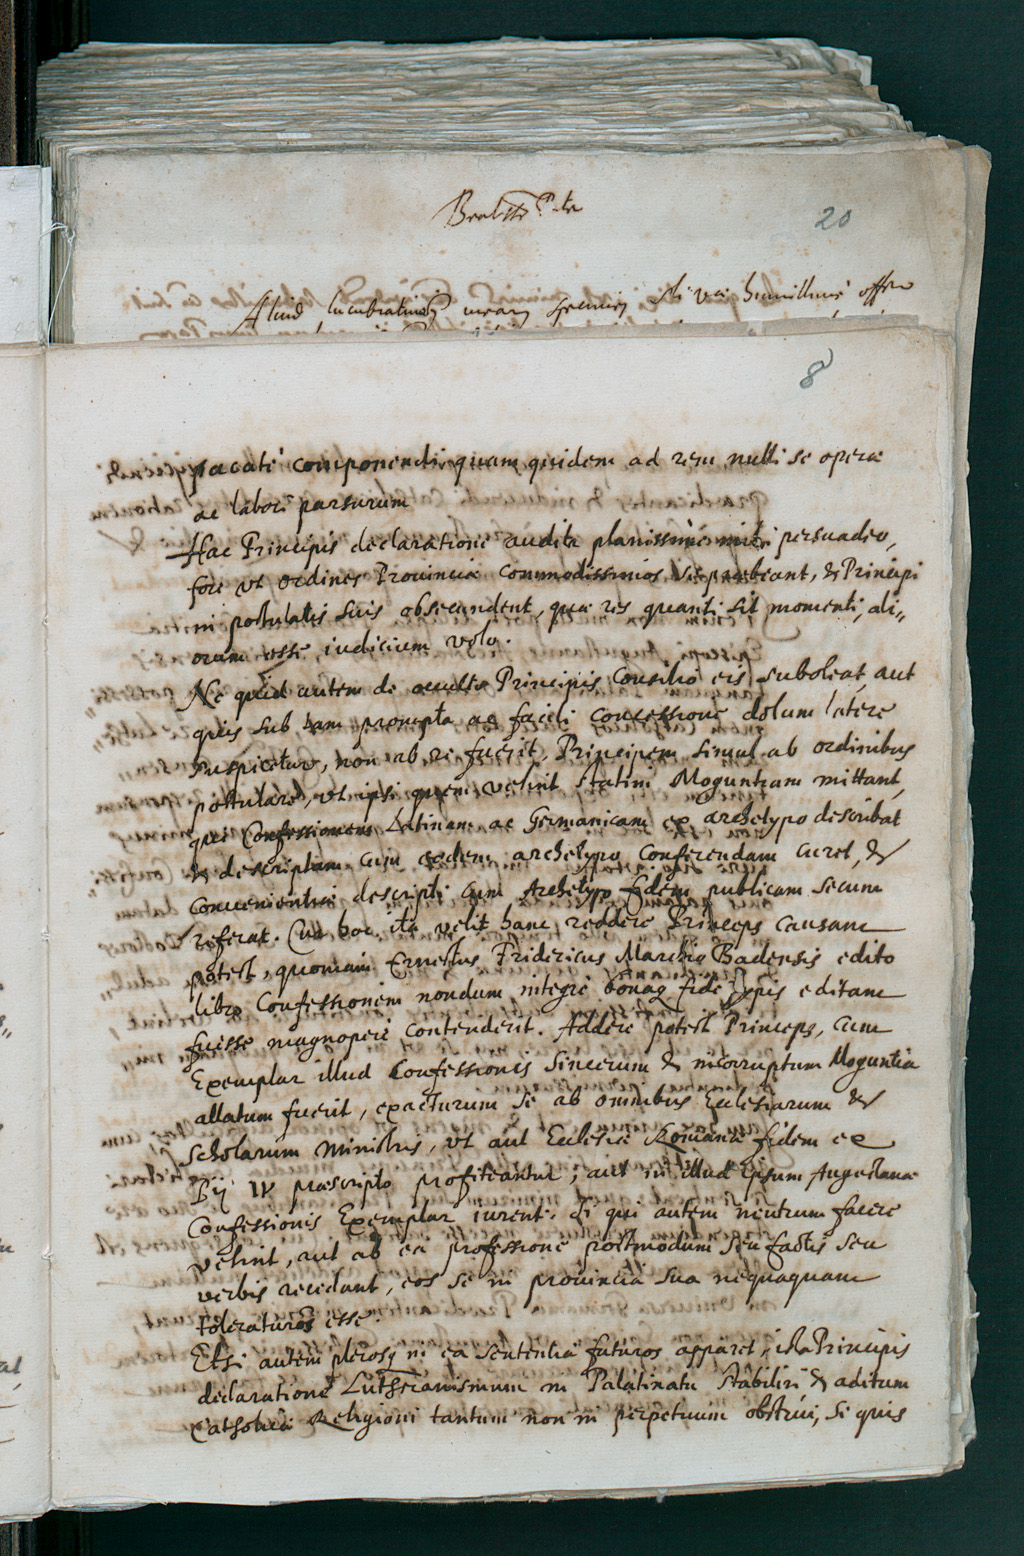 20
Aliud lucubrationũ mearũ specimen Sti Vrae humillime offero
8
pacate componendi: quam quidem ad rem nulli se operae
ac labori parsurum
Hac Principis declaratione audita planissime mihi persuadeo,
fore vt ordines Prouinciae commodissimos se praebeant, & Principi
in postulatis suis obsecundent, quae res quanti sit momenti, ali„
orum esse iudicium volo.
Ne quid autem de occulto Principis Consilio eis suboleat, aut
quis sub tam prompta ac facili concessione dolum latere
suspicetur, non ab re fuerit, Principem simul ab ordinibus
postulare, vt ipsi quem velint statim Moguntiam mittant,
qui Confessionem Latinam ac Germanicam ex archetypo describat
& descriptam cum eodem archetypo conferendam curet, &
conuenientiae descripti cum Archetypo fidem publicam secum
referat. Cur hoc ita velit hanc reddere Princeps causam
potest, quoniam Ernestus Fridericus Marchio Badensis edito
libro Confessionem nondum integre bonaq fide typis editam
fuisse magnopere contenderit. Addere potest Princeps, cum
Exemplar illud Confessionis sincerum & incorruptum Moguntia
allatum fuerit, exacturum se ab omnibus Ecclesiarum &
Scholarum ministris, vt aut Ecclesiae Romanae fidem ex
Pij IV praescripto profiteantur; aut in illud ipsum Augustanae
Confessionis Exemplar iurent. Si qui autem neutrum facere
velint, aut ab ea professione postmodum seu factis seu
verbis recedant, eos se in prouincia sua nequaquam
toleraturos esse.
Etsi autem plerosq in ea sententia futuros apparet, ista Principis
declaratione Lutheranismum in Palatinatu stabiliri & aditum
Catholicae Religioni tantum non in perpetuum obstrui, si quis